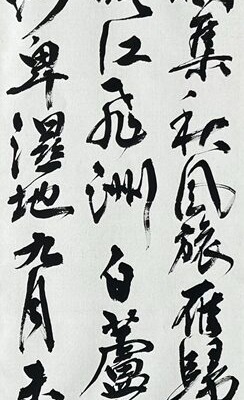 集秋風旅雁歸
江飛洲白蘆
沙卑濕地九月未